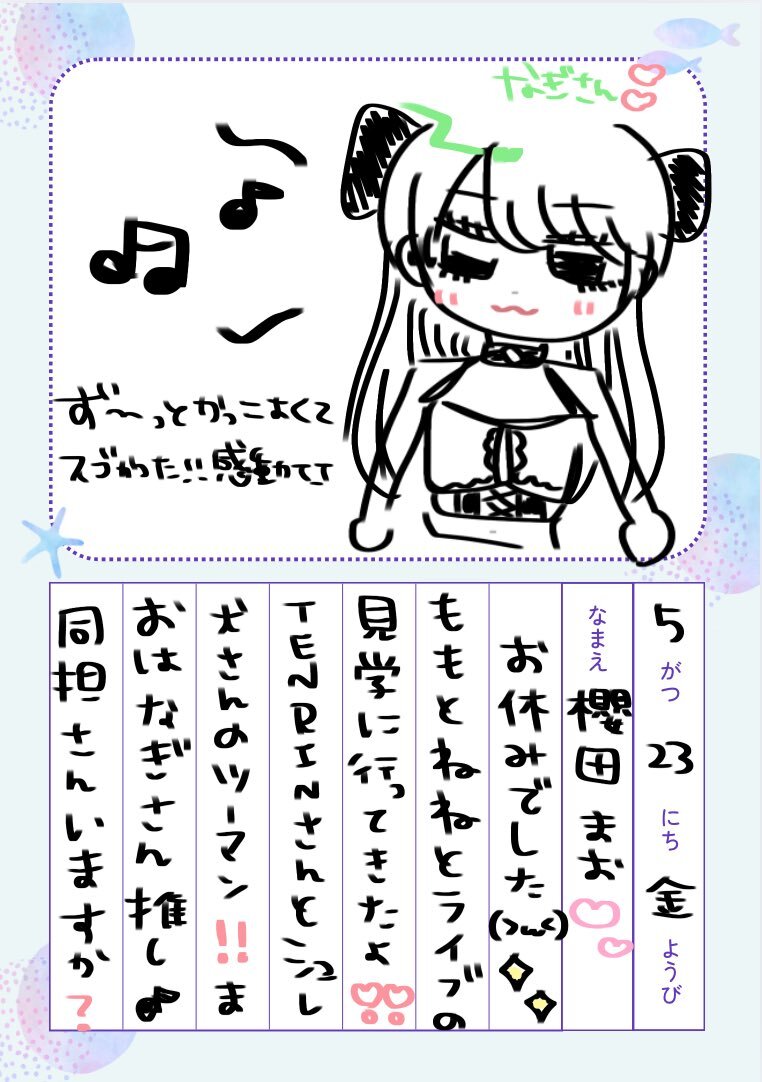 なぎさん♡♡
ず〜っとかっこよくて
スゴかった!!感動
5がつ23にち金ようび
なまえ 櫻田まお♡♡
お休みでした(>ω<)
ももとねねとライブの
見学に行ってきたよ♡♡
TENRINさんと
犬さんのツーマン!!ま
おはなぎさん推し♪
同担さんいますか?